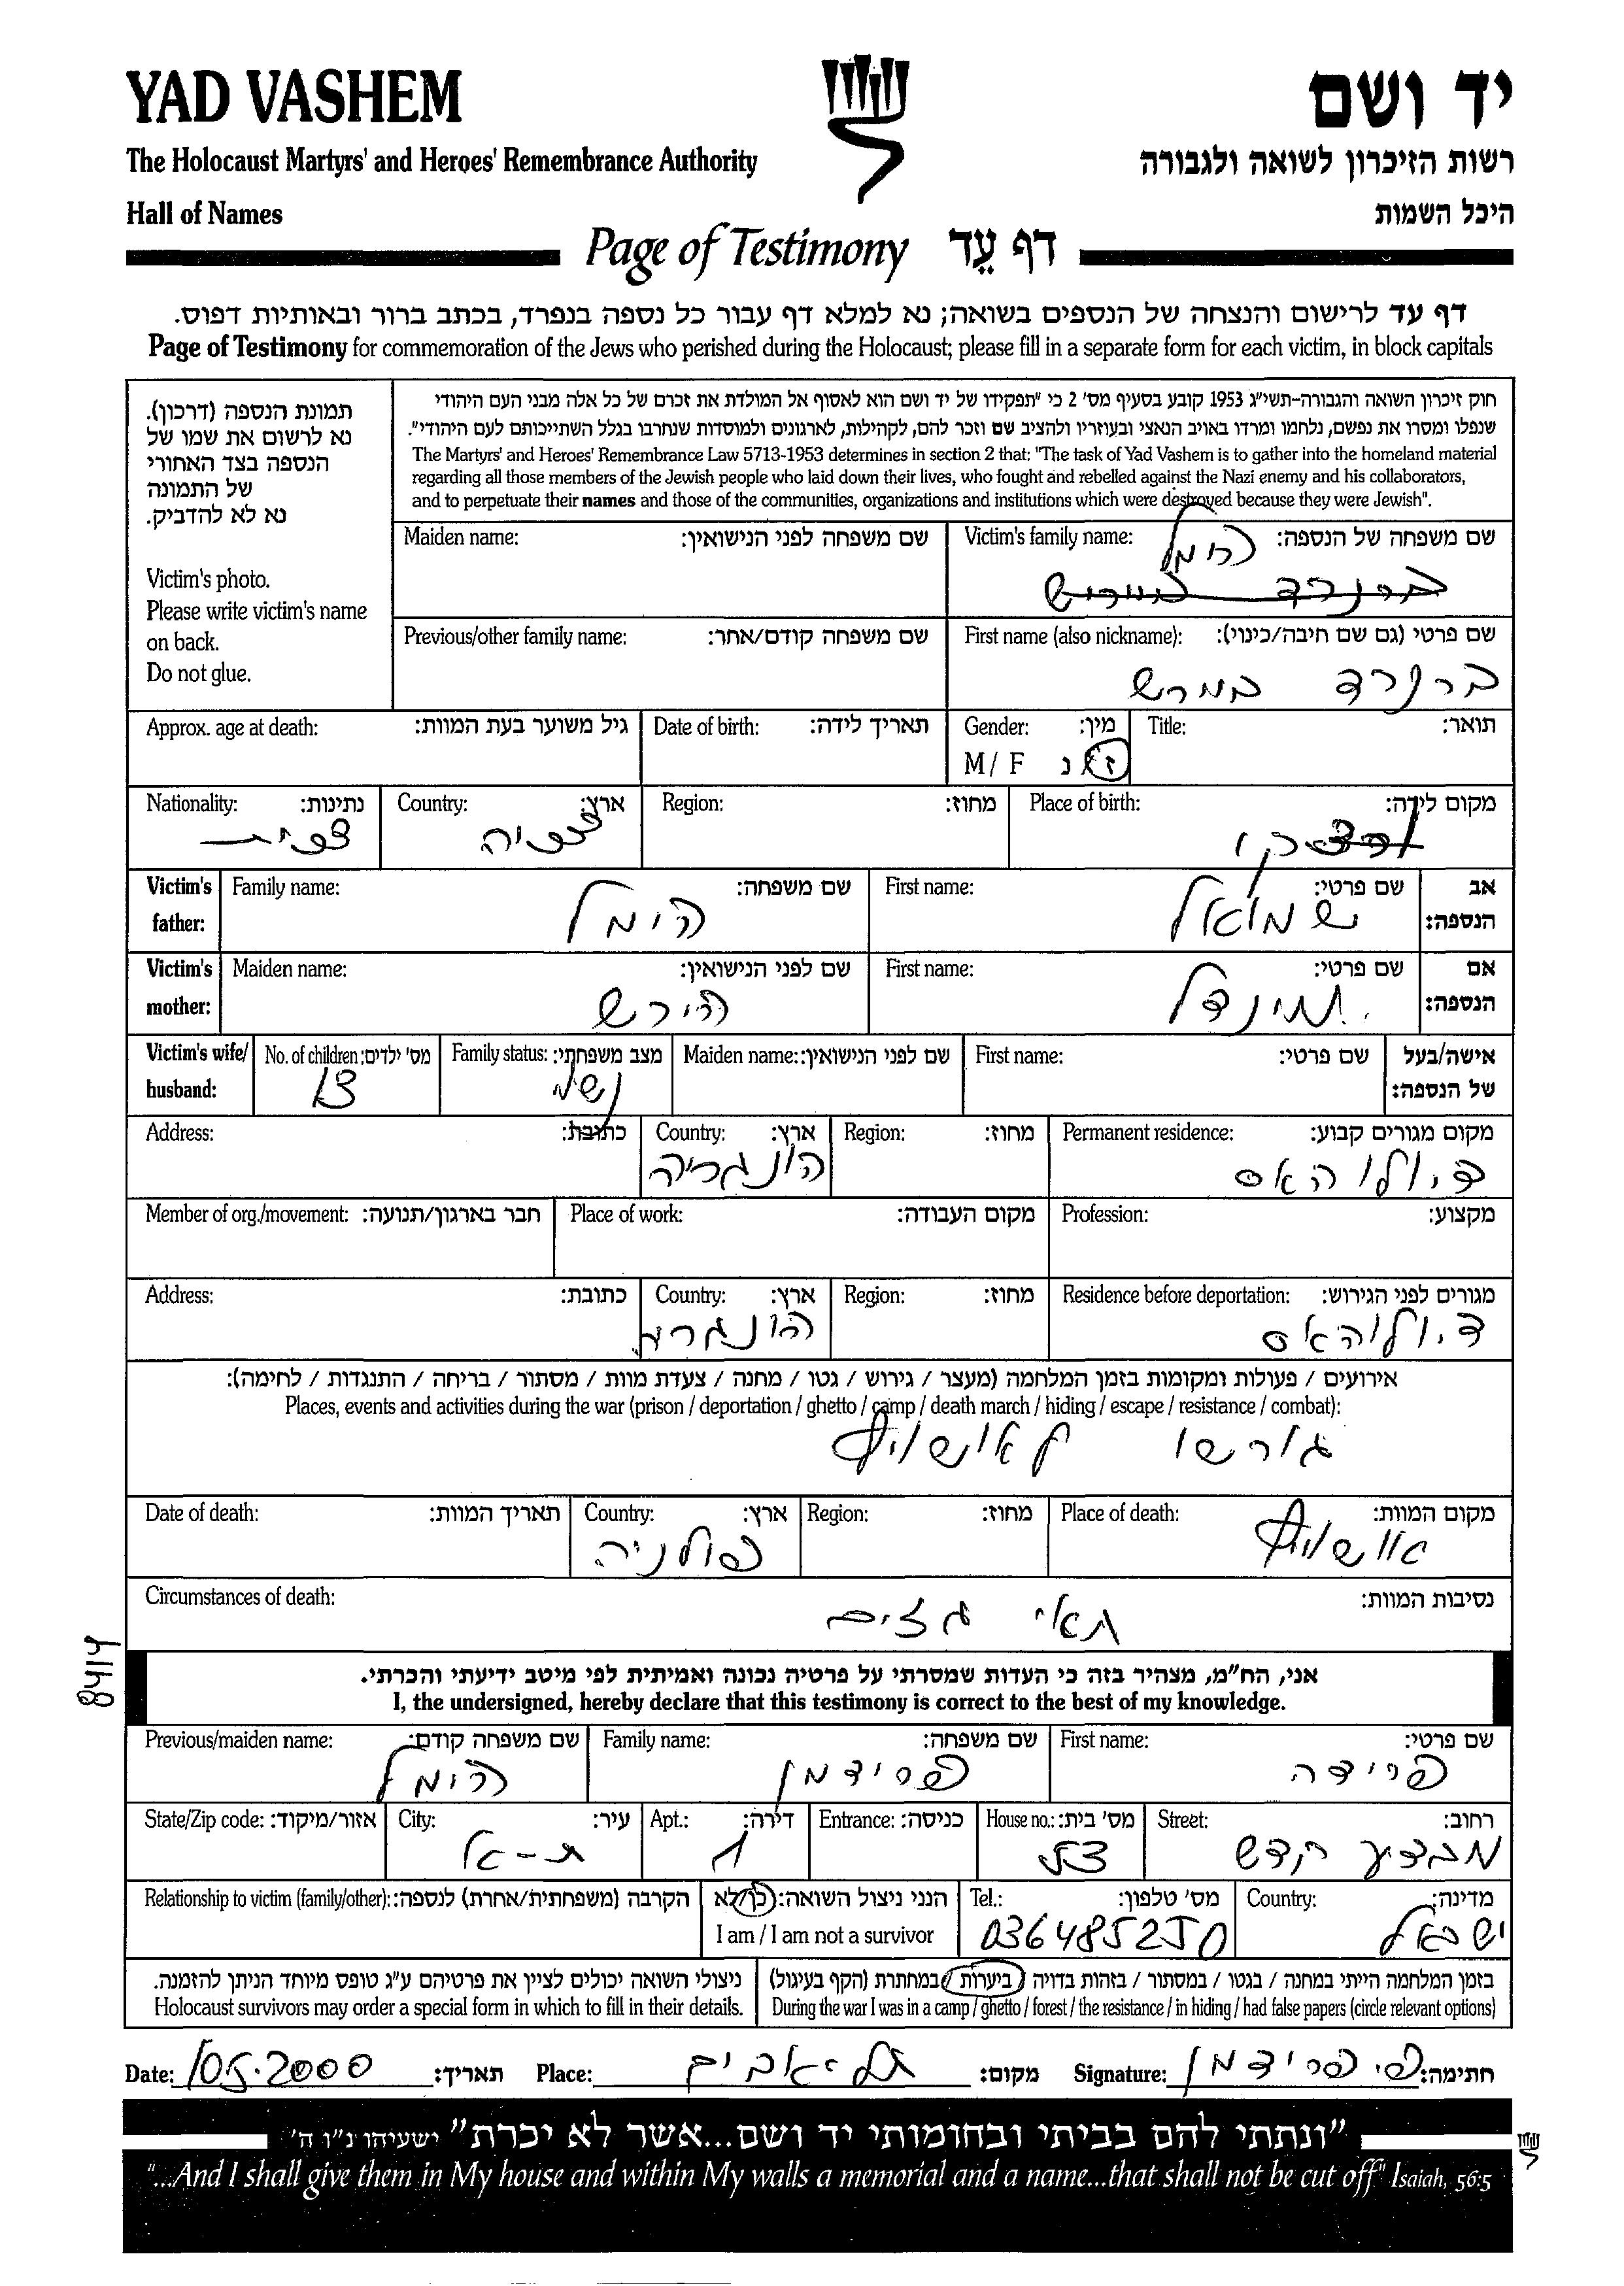 YAD VASHEM
יד ושם
The Holocaust Martyrs' and Heroes' Remembrance Authority
רשות הזיכרון לשואה ולגבורה
Hall of Names
היכל השמות
Page of Testimony דף עֵד
דף עד לרישום והנצחה של הנספים בשואה; נא למלא דף עבור כל נספה בנפרד, בכתב ברור ובאותיות דפוס.
Page of Testimony for commemoration of the Jews who perished during the Holocaust; please fill in a separate form for each victim, in block capitals
תמונת הנספה (דרכון).
נא לרשום את שמו של
הנספה בצד האחורי
של התמונה
נא לא להדביק.
Victim's photo.
Please write victim's name
on back.
Do not glue.
חוק זיכרון השואה והגבורה-תשי"ג 1953 קובע בסעיף מס' 2 כי "תפקידו של יד ושם הוא לאסוף אל המולדת את זכרם של כל אלה מבני העם היהודי
שנפלו ומסרו את נפשם, נלחמו ומרדו באויב הנאצי ובעוזריו ולהציב שם וזכר להם, לקהילות, לארגונים ולמוסדות שנחרבו בגלל השתייכותם לעם היהודי".
The Martyrs' and Heroes' Remembrance Law 5713-1953 determines in section 2 that: "The task of Yad Vashem is to gather into the homeland material
regarding all those members of the Jewish people who laid down their lives, who fought and rebelled against the Nazi enemy and his collaborators,
and to perpetuate their names and those of the communities, organizations and institutions which were destroyed because they were Jewish".
Maiden name: שם משפחה לפני הנישואין:
Victim's family name: שם משפחה של הנספה:
הימל
ברנרד
Previous/other family name: שם משפחה קודם/אחר:
First name (also nickname): שם פרטי (גם שם חיבה/כינוי):
ברנרד
Approx. age at death: גיל משוער בעת המוות:
Date of birth: תאריך לידה:
Gender: מין:
M / F ז / נ
Title: תואר:
Nationality: נתינות:
צכית
Country: ארץ:
צכיה
Region: מחוז:
Place of birth: מקום לידה:
Victim's father: Family name: שם משפחה:
הימל
First name: שם פרטי:
שמואל
אב הנספה:
Victim's mother: Maiden name: שם לפני הנישואין:
הירש
First name: שם פרטי:
מינדל
אם הנספה:
Victim's wife/husband:
No. of children: מס' ילדים:
Family status: מצב משפחתי:
נשוי
Maiden name: שם לפני הנישואין:
First name: שם פרטי:
אישה/בעל של הנספה:
Address: כתובת:
Country: ארץ:
הונגריה
Region: מחוז:
Permanent residence: מקום מגורים קבוע:
Member of org./movement: חבר בארגון/תנועה:
Place of work: מקום העבודה:
Profession: מקצוע:
Address: כתובת:
Country: ארץ:
הונגריה
Region: מחוז:
Residence before deportation: מגורים לפני הגירוש:
אירועים / פעולות ומקומות בזמן המלחמה (מעצר / גירוש / גטו / מחנה / צעדת מוות / מסתור / בריחה / התנגדות / לחימה):
Places, events and activities during the war (prison / deportation / ghetto / camp / death march / hiding / escape / resistance / combat):
גורשו לאושויץ
Date of death: תאריך המוות:
Country: ארץ:
פולניה
Region: מחוז:
Place of death: מקום המוות:
אושויץ
Circumstances of death: נסיבות המוות:
תאי גזים
8414
אני, הח"מ, מצהיר בזה כי העדות שמסרתי על פרטיה נכונה ואמיתית לפי מיטב ידיעתי והכרתי.
I, the undersigned, hereby declare that this testimony is correct to the best of my knowledge.
Previous/maiden name: שם משפחה קודם:
הימל
Family name: שם משפחה:
פרידמן
First name: שם פרטי:
פרידה
State/Zip code: אזור/מיקוד:
City: עיר:
ת-א
Apt.: דירה:
1
Entrance: כניסה:
House no.: מס' בית:
Street: רחוב:
מבצע קדש
Relationship to victim (family/other): הקרבה (משפחתית/אחרת) לנספה:
הנני ניצול השואה: כן/לא
I am / I am not a survivor
Tel.: מס' טלפון:
036485250
Country: מדינה:
ישראל
ניצולי השואה יכולים לציין את פרטיהם ע"ג טופס מיוחד הניתן להזמנה.
Holocaust survivors may order a special form in which to fill in their details.
בזמן המלחמה הייתי במחנה / בגטו / במסתור / בזהות בדויה / ביערות / במחתרת (הקף בעיגול)
During the war I was in a camp / ghetto / forest / the resistance / in hiding / had false papers (circle relevant options)
Date: 10.5.2000 תאריך:
Place: תל-אביב מקום:
Signature: פ. פרידמן חתימה:
"ונתתי להם בביתי ובחומותי יד ושם...אשר לא יכרת" ישעיהו נ"ו ה'
"...And I shall give them in My house and within My walls a memorial and a name...that shall not be cut off" Isaiah, 56:5